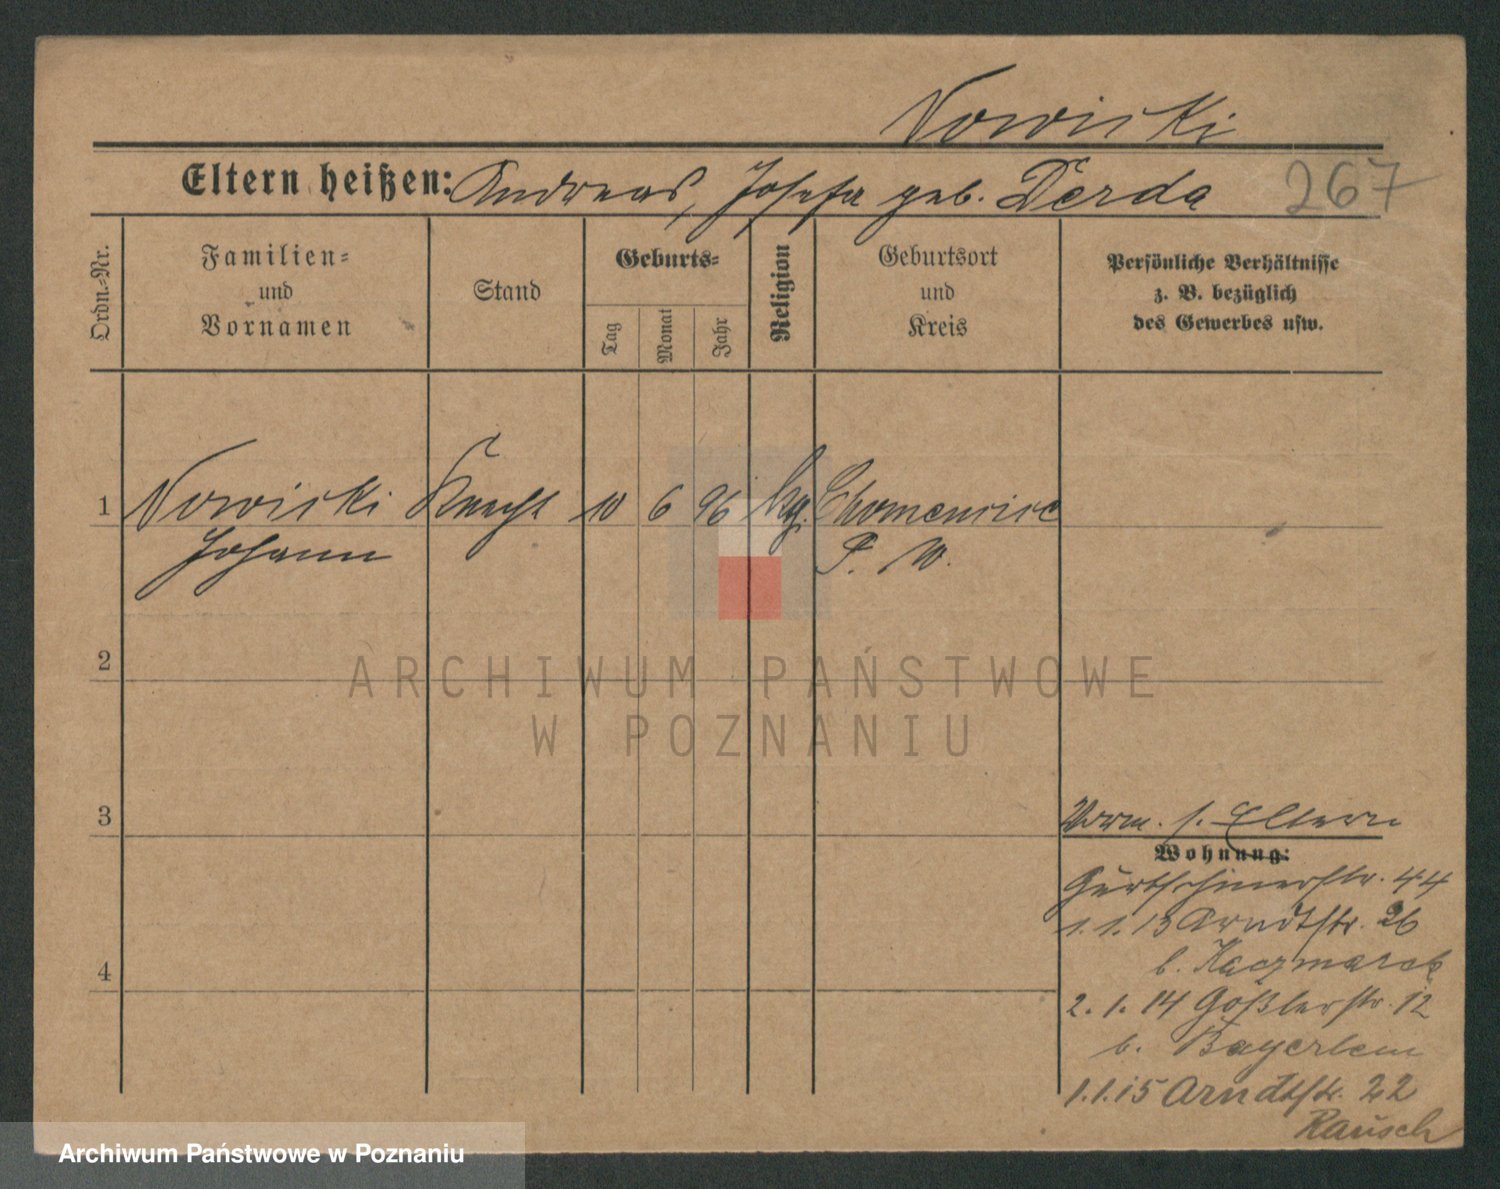 Nowicki
Eltern heißen: Andreas, Josefa geb. Derda
267
Ordn.-Nr.
Familien-
und
Vornamen
Stand
Geburts-
Tag
Monat
Jahr
Religion
Geburtsort
und
Kreis
Persönliche Verhältnisse
z. B. bezüglich
des Gewerbes usw.
1 Nowicki Knecht 10 6 96 kg.
Johann P. W.
2
ARCHIWUM PAŃSTWOWE
W POZNANIU
3
Vorm. s. Eltern
Wohnung:
Gurtschinerstr. 44
1.1.13 Arndtstr. 26
b. Kaczmarek
4
2.1.14 Gößlerstr. 12
b. Bayerlein
1.1.15 Arndtstr. 22
Rausch
Archiwum Państwowe w Poznaniu